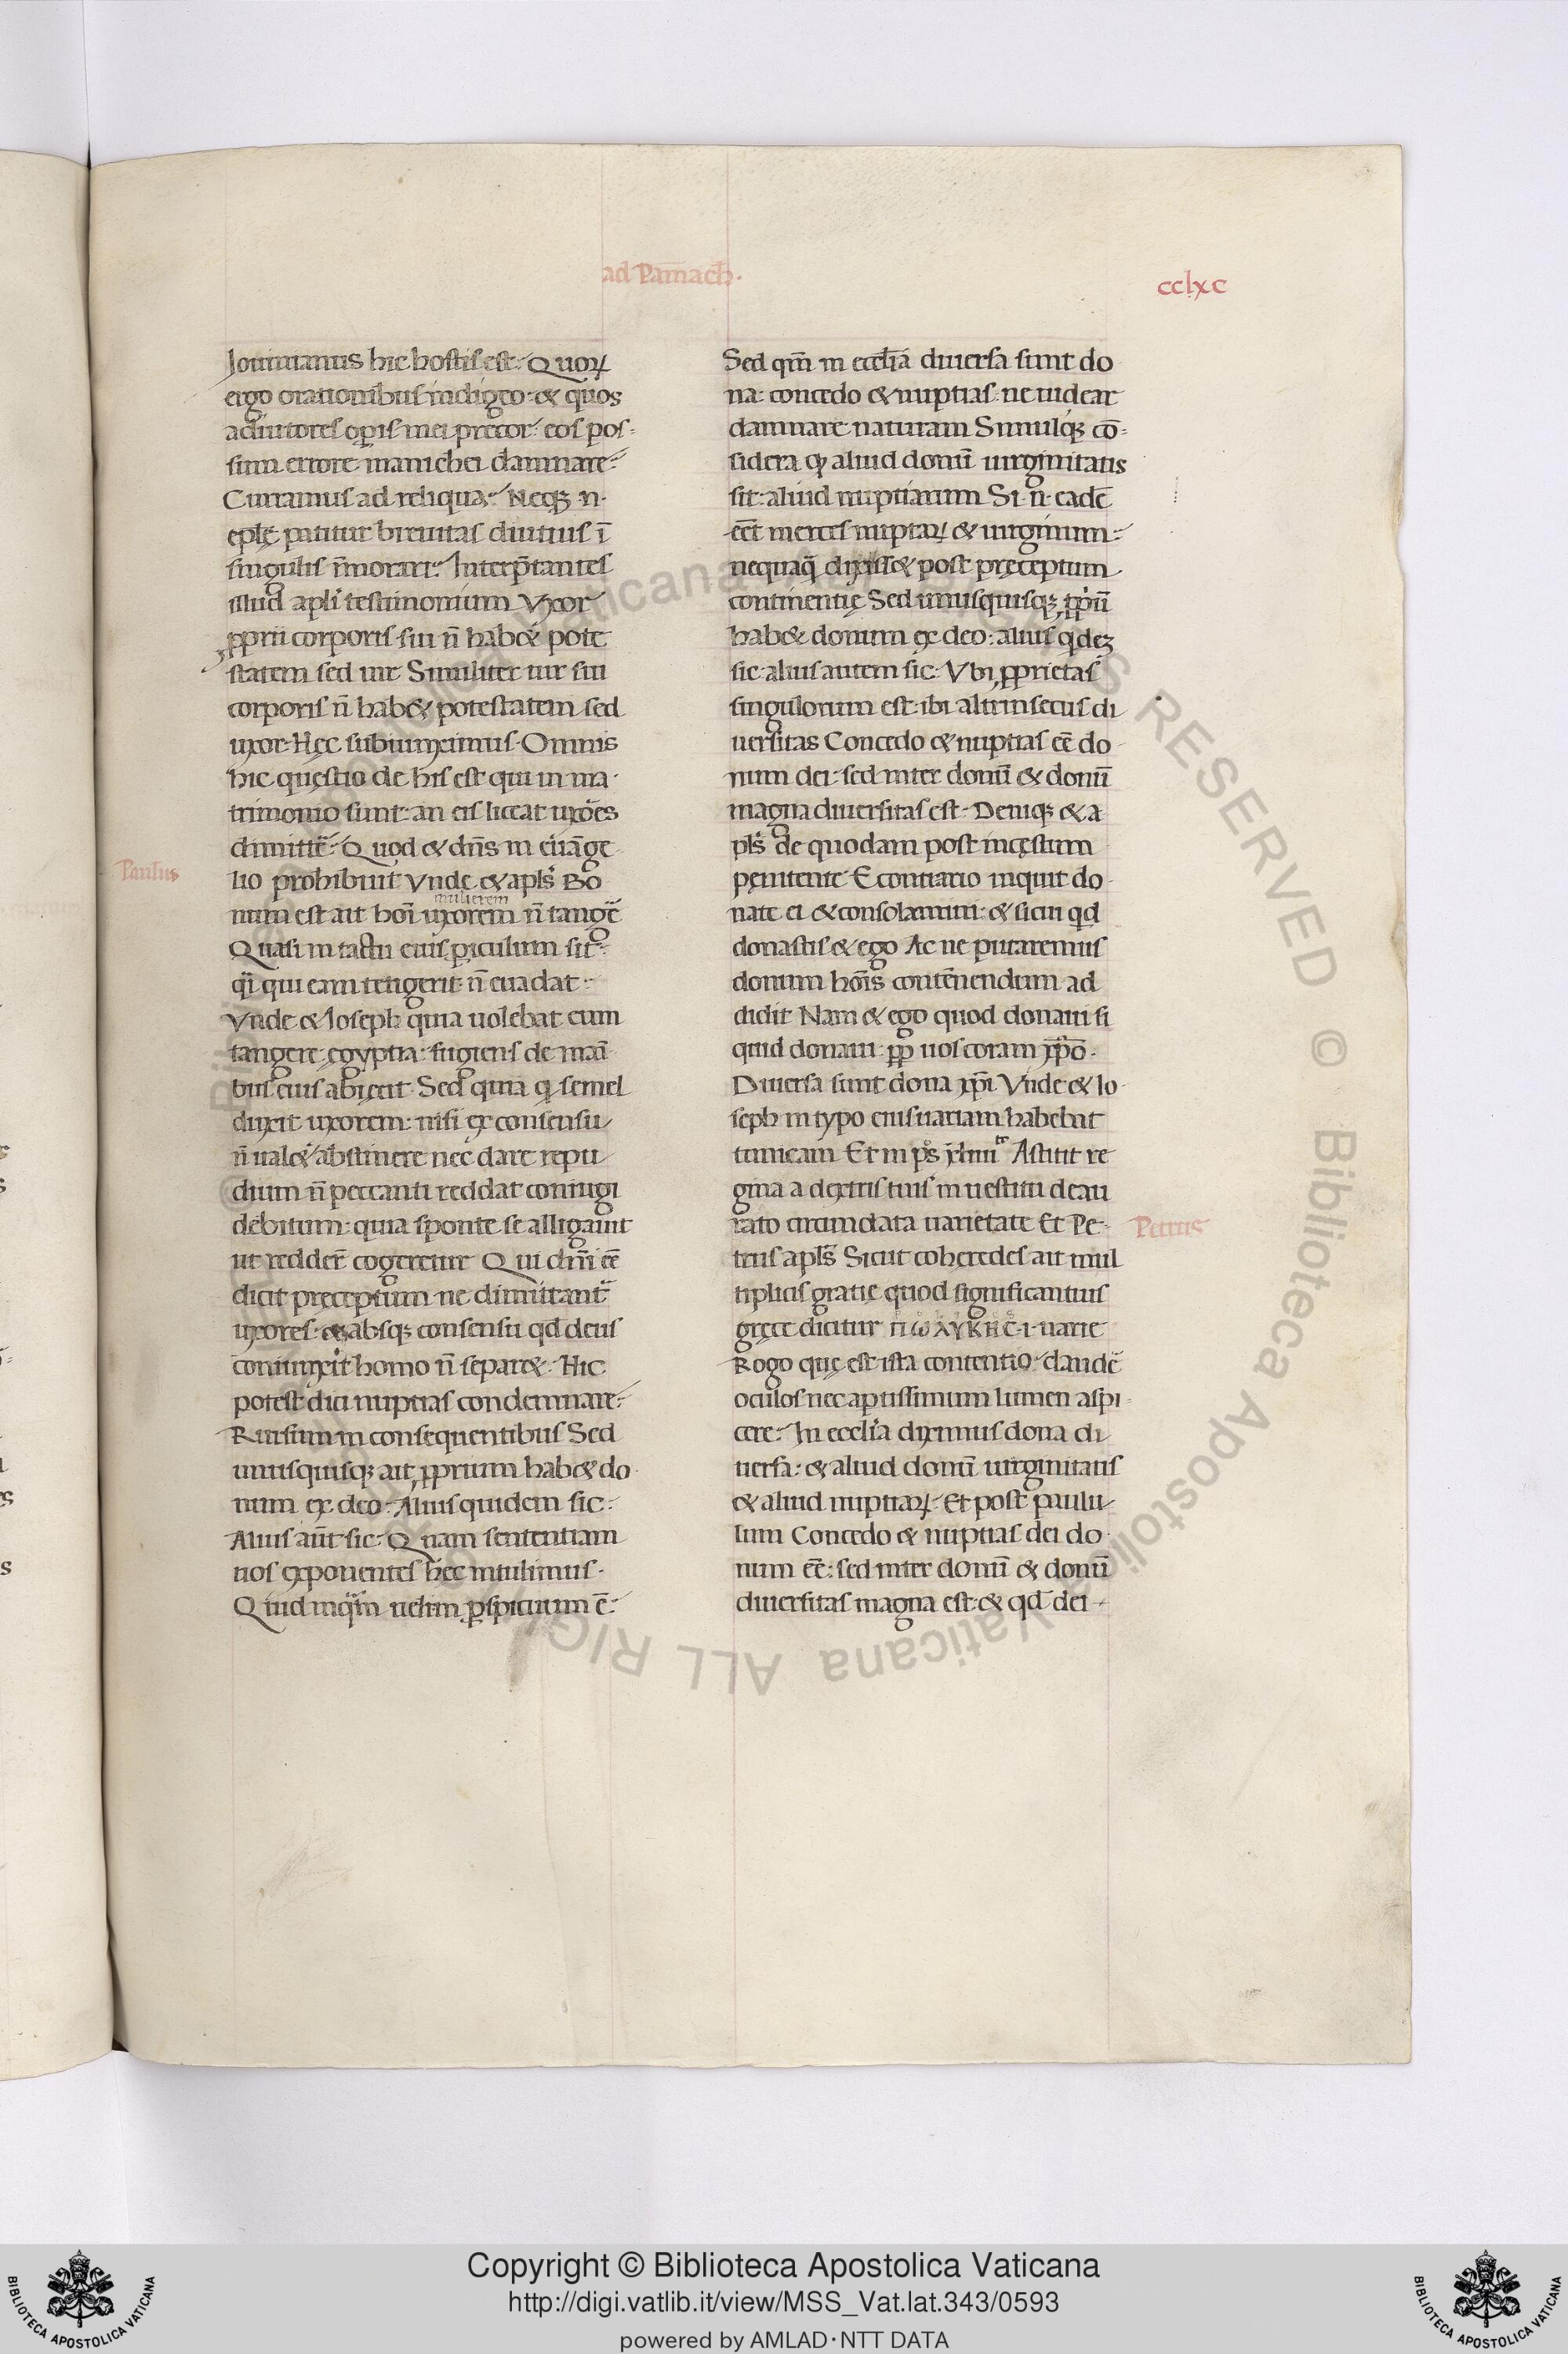 ad Pām̄ach̄.
cclxc
Iouinianus hic hostis est. Quoꝝ
ergo orationibus indigeo: & quos
adiutores op̲is mei precor: eos pos-
sum errore manichei damnare.
Curramus ad reliqua. Neqꝫ n̄.
eplę patitur breuitas diutius ī
singulis īmorari. Interp̄tantes
illud apłi testimonium Vxor
ꝓprii corporis sui n̄ hab& pote
statem sed uir Similiter uir sui
corporis n̄ hab& potestatem sed
uxor. Hęc subiunximus. Omnis
hic questio de his est qui in ma
trimonio sunt: an eis liceat uxōes
dimittē. Quod & dn̄s in euāge
lio prohibuit Vnde & apłs Bo
mulierem
num est ait hoī uxorem n̄ tangē
Quasi in tactu eius ꝑiculum sit:
q̄i qui eam tengerit: n̄ euadat:
Vnde & Ioseph quia uolebat eum
tangere egyptia: fugiens de mani
bus eius abiecit Sed quia q̲ semel
duxit uxorem: nisi ex consensu
n̄ ual& abstinere nec dare repu
dium n̄ peccanti reddat coniugi
debitum: quia sponte se alligauit
ut redderē cogeretur Qui dn̄i eē
dicit pręceptum ne dimittant̄
uxores: & absqꝫ consensu qd̄ deus
coniunxit homo n̄ separ&. Hic
potest dici nuptias condemnare.
Rursum in consequentibus Sed
unusquisqꝫ ait ꝓprium hab& do
num ex deo. Alius quidem sic:
Alius aūt sic. Quam sententiam
nos exponentes hęc intulimus.
Quid inq̄m uelim ꝑspicuum ē.
Sed qm̄ in eccłia diuersa sunt do
na: concedo & nuptias: ne uidear
damnare naturam Simulqꝫ cō-
sidera q̲ aliud donū uirginitatis
sit: aliud nuptiarum Si n̄ eadē
eēt merces nuptaꝝ & uirginum:
nequaq̄ dixiss& post pręceptum
continentię Sed unusquisqꝫ ꝓpiū
hab& donum ex deo: alius q̲deꝫ
sic alius autem sic. Vbi ꝓprietas
singulorum est: ibi altrinsecus di
uersitas Concedo & nuptias eē do
num dei: sed inter donū & donū
magna diuersitas est. Deniqꝫ & a
płs de quodam post incęstum
pęnitente E contrario inquit do
nate ei & consolamini: & sicui qd̄
donastis & ego Ac ne putaremus
donum hoīs contēnendum ad
didit Nam & ego quod donaui si
quid donaui: ꝓp̄ uos coram xp̄o.
Diuersa sunt dona xp̄i Vnde & Io
seph in typo eius uariam habebat
tunicam Et in ps̄ xliiii Astitit re
gina a dextris tuis in uestitu deau
rato circumdata uarietate Et Pe-
trus apłs Sicut coheredes ait mul
tiplicis gratię quod significantius
gręce dicitur ΠΩΛΥΚΗC .i. uarie
Rogo que est ista contentio: claudē
oculos nec aptissimum lumen aspi
cere. In eccłia diximus dona di
uersa: & aliud donū uirginitatis
& aliud nuptiaꝝ. Et post paulu
lum Concedo & nuptias dei do
num eē: sed inter donū & donū
diuersitas magna est. & qd̄ dei
Paulus
Petrus
Copyright © Biblioteca Apostolica Vaticana
http://digi.vatlib.it/view/MSS_Vat.lat.343/0593
powered by AMLAD·NTT DATA
BIBLIOTECA APOSTOLICA VATICANA
BIBLIOTECA APOSTOLICA VATICANA
© Biblioteca Apostolica Vaticana ALL RIGHTS RESERVED © Biblioteca Apostolica Vaticana ALL RIGHTS RESERVED